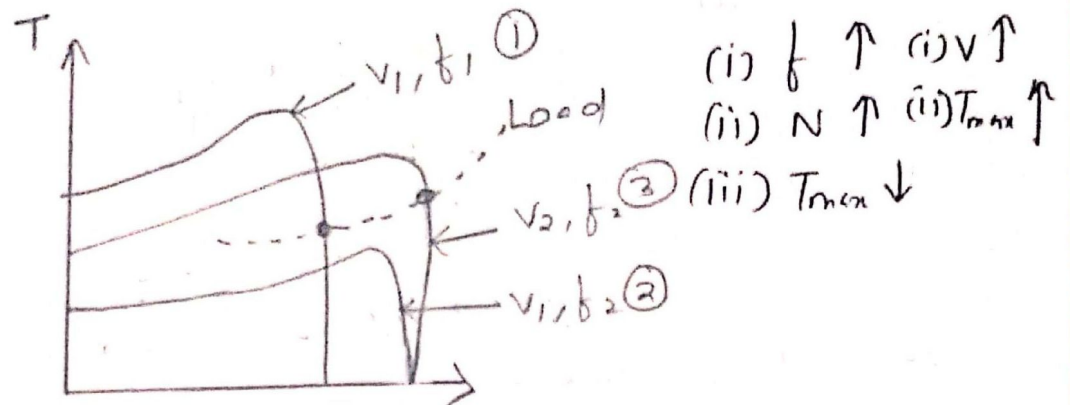 T
V₁, f₁ ①
Load
V₂, f₂ ③
V₁, f₂ ②
(i) f ↑ (i) V ↑
(ii) N ↑ (ii) Tmax ↑
(iii) Tmax ↓